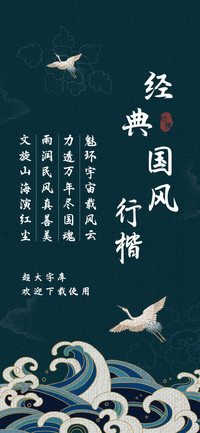 经典国风行楷
魅环宇宙载风云
力透万年尽国魂
雨润民风真善美
文旋山海演红尘
超大字库
欢迎下载使用